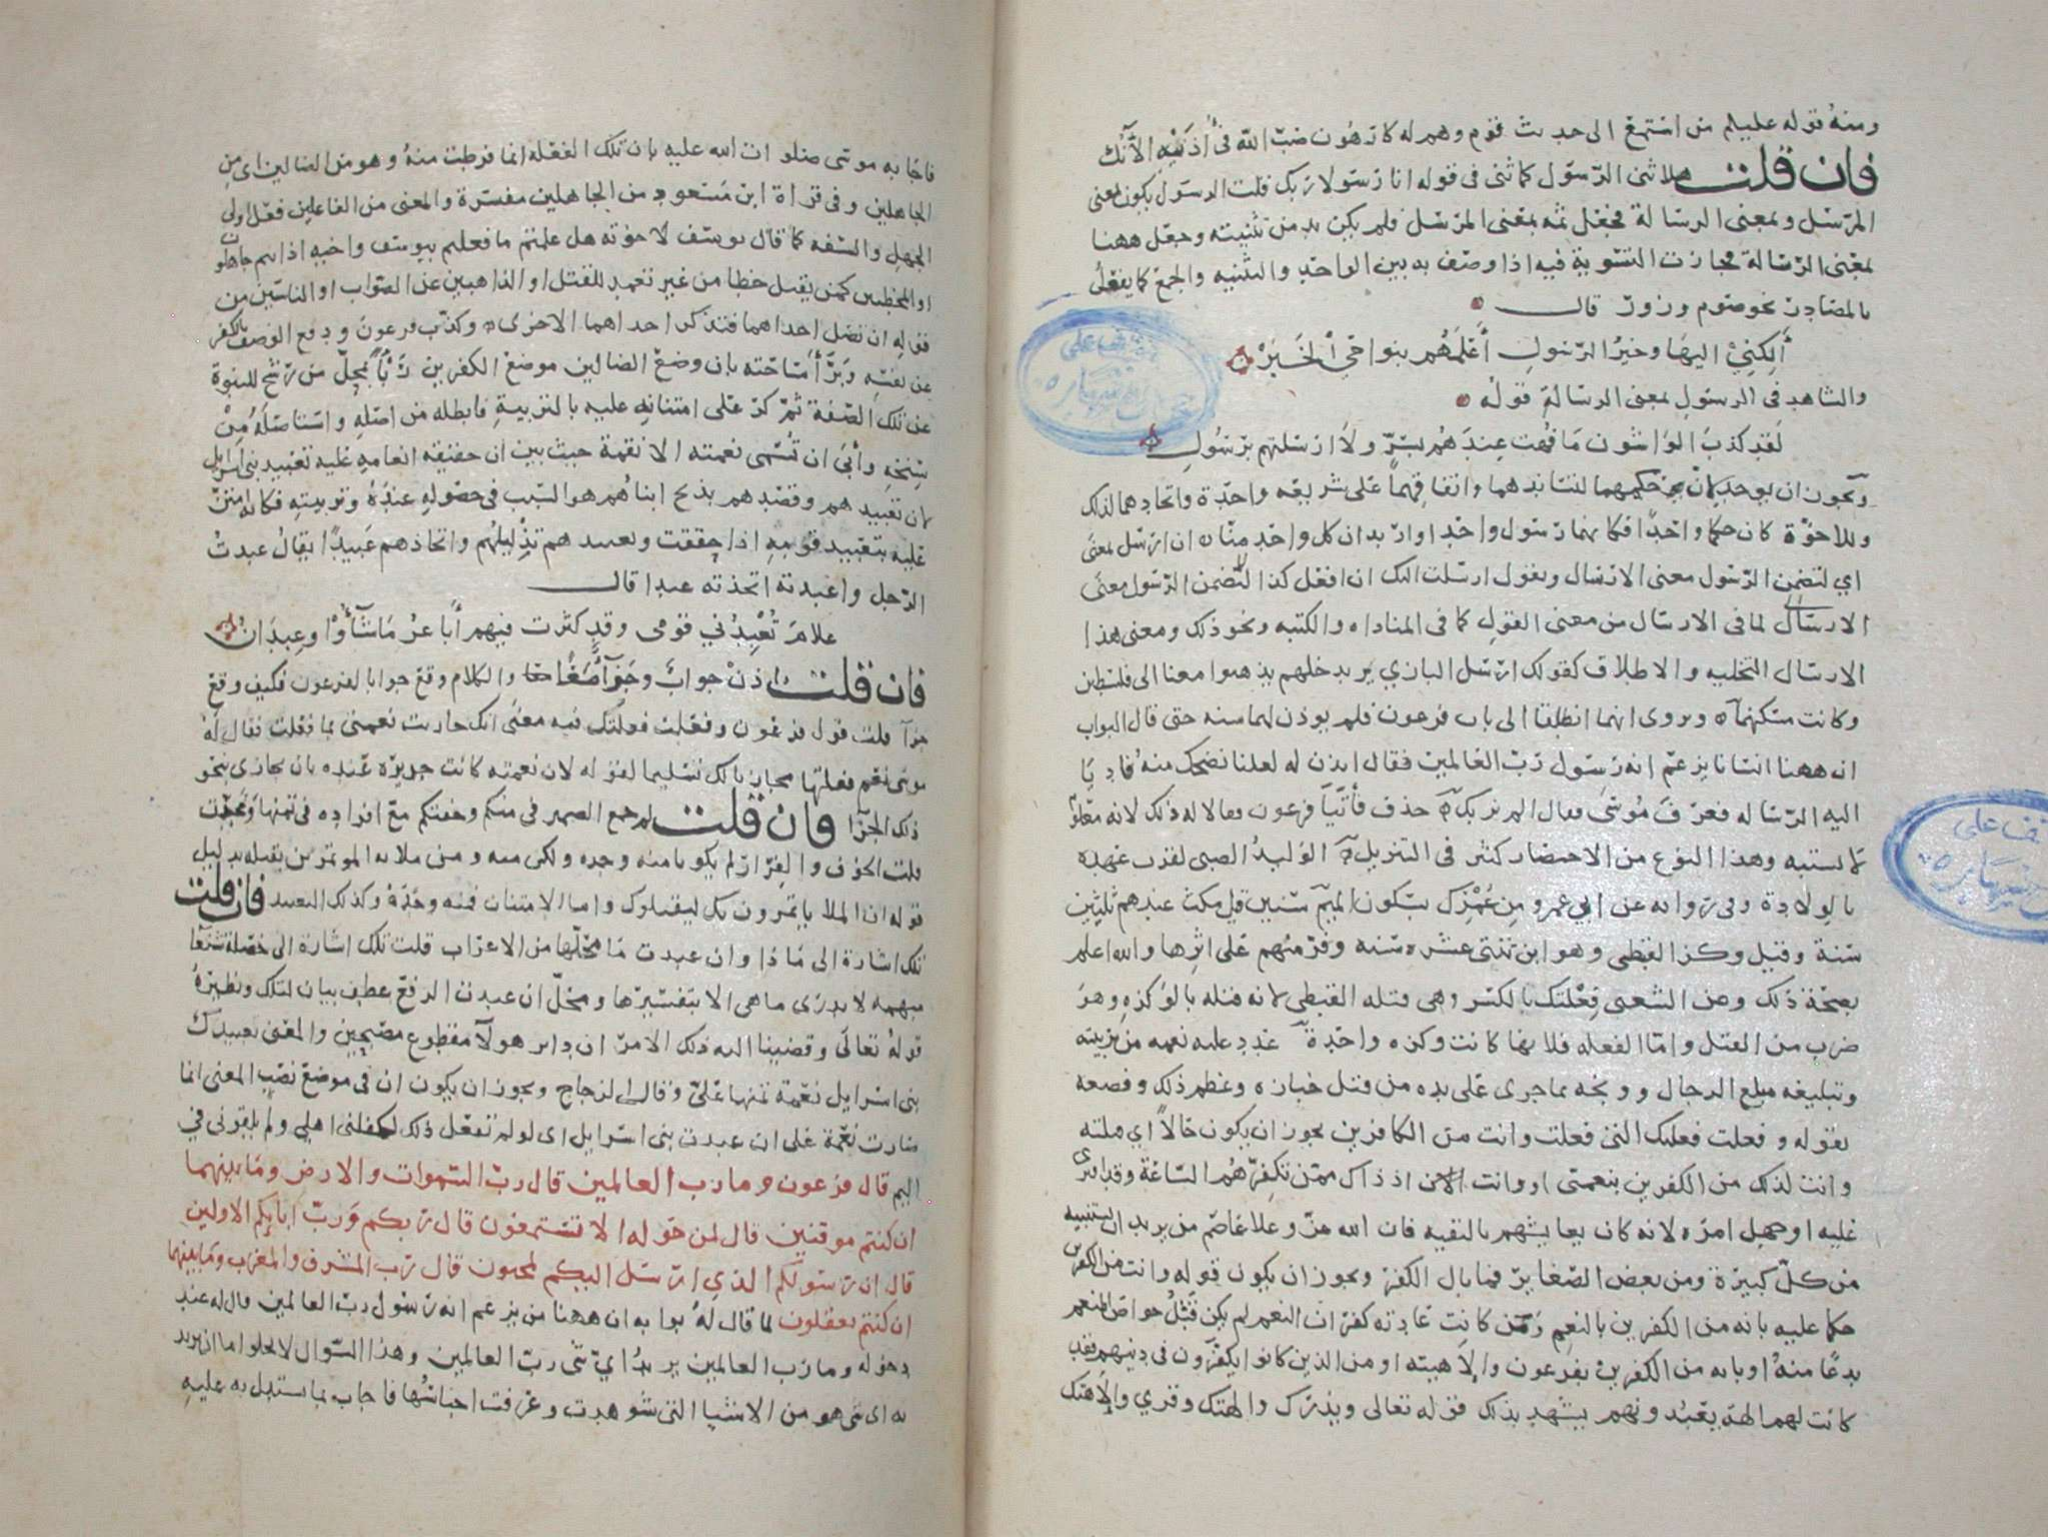 ومنه قوله عليلم من استمع الى حديث قوم وهم له كارهون صب الله في أذنيه الآنك
فان قلت هلا ثنى الرسول كما ثنى في قوله انا رسولا ربك قلت الرسول يكون بمعنى
المرسل وبمعنى الرسالة فجعل ثمه بمعنى المرسل فلم يكن بد من تثنيته وجعل ههنا
بمعنى الرسالة فجازت التسوية فيه اذا وصف به بين الواحد والتثنيه والجمع كما يفعل
بالمصادر نحو صوم وزور قال
ألكني اليها وخير الرسول أعلمهم بنواحي الخبر
والشاهد في الرسول بمعنى الرسالة قوله
لقد كذب الواشون ما فهت عندهم بسر ولا ارسلتهم برسول
ويجوز ان يوحد لان حكمهما لتساندهما واتفاقهما على شريعه واحدة واتحادهما لذلك
وللاخوة كان حكما واحدا فكانهما رسول واحد او اريد ان كل واحد منا ان ارسل بمعنى
اي لتضمن الرسول معنى الارسال وتقول ارسلت اليك ان افعل كذا لتضمن الرسول معنى
الارسال لما في الارسال من معنى القول كما في المناداه والكتبه ونحو ذلك ومعنى هذا
الارسال التخليه والاطلاق كقولك ارسل البازي يريد خلهم يذهبوا معنا الى فلسطين
وكانت مسكنهما ويروى انهما انطلقا الى باب فرعون فلم يوذن لهما سنه حتى قال البواب
ان ههنا انسانا يزعم انه رسول رب العالمين فقال ايذن له لعلنا نضحك منه فاديا
اليه الرساله فعرف موسى فقال الم نربك حذف فأتيا فرعون فقالا له ذلك لانه معلوم
لا يشتبه وهذا النوع من الاختصار كثير في التنزيل الوليد الصبى لقرب عهده
بالولادة وفى روايه عن ابي عمرو من عمرك بسكون الميم سنين قيل مكث عندهم ثلثين
سنة وقيل وكز القبطى وهو ابن ثنتى عشره سنه وفر منهم على اثرها والله اعلم
بصحة ذلك وعن الشعبى فعلتك بالكسر وهى قتله القبطى لانه قتله بالوكزه وهو
ضرب من القتل واما الفعله فلانها كانت وكزه واحدة عدد عليه نعمه من تربيته
وتبليغه مبلغ الرجال ووبخه بما جرى على يده من قتل خبازه وعظم ذلك وفصعه
بقوله وفعلت فعلتك التى فعلت وانت من الكافرين يجوز ان يكون حالا اي قتلته
وانت لذلك من الكفرين بنعمتى او وانت اذ ذاك ممن تكفرهم الساعة وقد افترى
عليه او جهل امره لانه كان يعايشهم بالتقيه فان الله عز وعلا عاصم من يريد ان يستنبيه
من كل كبيرة ومن بعض الصغاير فما بال الكفر ويجوز ان يكون قوله وانت من الكفرين
حكما عليه بانه من الكفرين بالنعم ومن كانت عادته كفران النعم لم يكن قتل خواص المنعم
بدعا منه او بانه من الكفرين بفرعون والاهيته او من الذين كانوا يكفرون في دينهم فقد
كانت لهم الهة يعبدونهم يشهد بذلك قوله تعالى ويذرك والهتك وقري والاهتك
فاجابه موسى صلوات الله عليه بان تلك الفعله انما فرطت منه وهو من الضالين اى من
الجاهلين وفى قراة ابن مسعود من الجاهلين مفسرة والمعنى من الفاعلين فعل اولى
الجهل والسفه كما قال يوسف لاخوته هل علمتم ما فعلتم بيوسف واخيه اذ انتم جاهلون
او المخطين كمن يقتل خطا من غير تعمد للقتل او الذاهبين عن الصواب او الناسين من
قوله ان تضل احداهما فتذكر احداهما الاخرى وكذب فرعون ودفع الوصف بالكفر
عن نفسه وبرأ ساحته بان وضع الضالين موضع الكفرين ربأ بمحل من رشح للنبوة
عن تلك الصفة ثم كر على امتنانه عليه بالتربية فابطله من اصله واستاصله من
سنخه وأبى ان تسمى نعمته الا نقمة حيث بين ان حقيقه انعامه عليه تعبيد بنى اسرايل
لان تعبيدهم وقصدهم بذبح ابناهم هو السبب في حصوله عنده وتربيته فكانه امتن
عليه بتعبيد قومه اذا حققت وتعبيدهم تذليلهم واتخاذهم عبيدا يقال عبدت
الرجل واعبدته اتخذته عبدا قال
علام يعبدني قومى وقد كثرت فيهم أباعر ما شاؤا وعبدان
فان قلت اذن جواب وجزآ معا والكلام وقع جوابا لفرعون فكيف وقع
جزآ قلت قول فرعون وفعلت فعلتك فيه معنى انك جازيت نعمتى بما فعلت فقال له
موسى نعم فعلتها مجازيا لك تسليما لقوله لان نعمته كانت جديرة عنده بان يجازى بنحو
ذلك الجزآ فان قلت لم جمع الضمير في منكم وخفتكم مع افراده في تمنها وعبدت
قلت الخوف والفرار لم يكونا منه وحده ولكن منه ومن ملايه الموتمرين بقتله بدليل
قوله ان الملا ياتمرون بك ليقتلوك واما الامتنان فمنه وحده وكذلك التعبيد فان قلت
تلك اشارة الى ماذا وان عبدت ما محلها من الاعراب قلت تلك اشارة الى خصلة شنعآ
مبهمه لا يدرى ما هى الا بتفسيرها ومحل ان عبدت الرفع عطف بيان لتلك ونظيره
قوله تعالى وقضينا اليه ذلك الامر ان دابر هولآ مقطوع مصبحين والمعنى تعبيدك
بنى اسرايل نعمة تمنها على وقال الزجاج ويجوز ان يكون ان في موضع نصب المعنى انما
صارت نعمة على ان عبدت بنى اسرايل اى لو لم تفعل ذلك لكفلنى اهلى ولم يلقونى في
اليم قال فرعون وما رب العالمين قال رب السموات والارض وما بينهما
ان كنتم موقنين قال لمن حوله الا تستمعون قال ربكم ورب ابايكم الاولين
قال ان رسولكم الذي ارسل اليكم لمجنون قال رب المشرق والمغرب وما بينهما
ان كنتم تعقلون لما قال له بوابه ان ههنا من يزعم انه رسول رب العالمين قال له عند
دخوله وما رب العالمين يريد اي شى رب العالمين وهذا السوال لا يخلو اما ان يريد
به اى شى هو من الاشيا التى شوهدت وعرفت اجناسها فاجاب بما يستدل به عليه